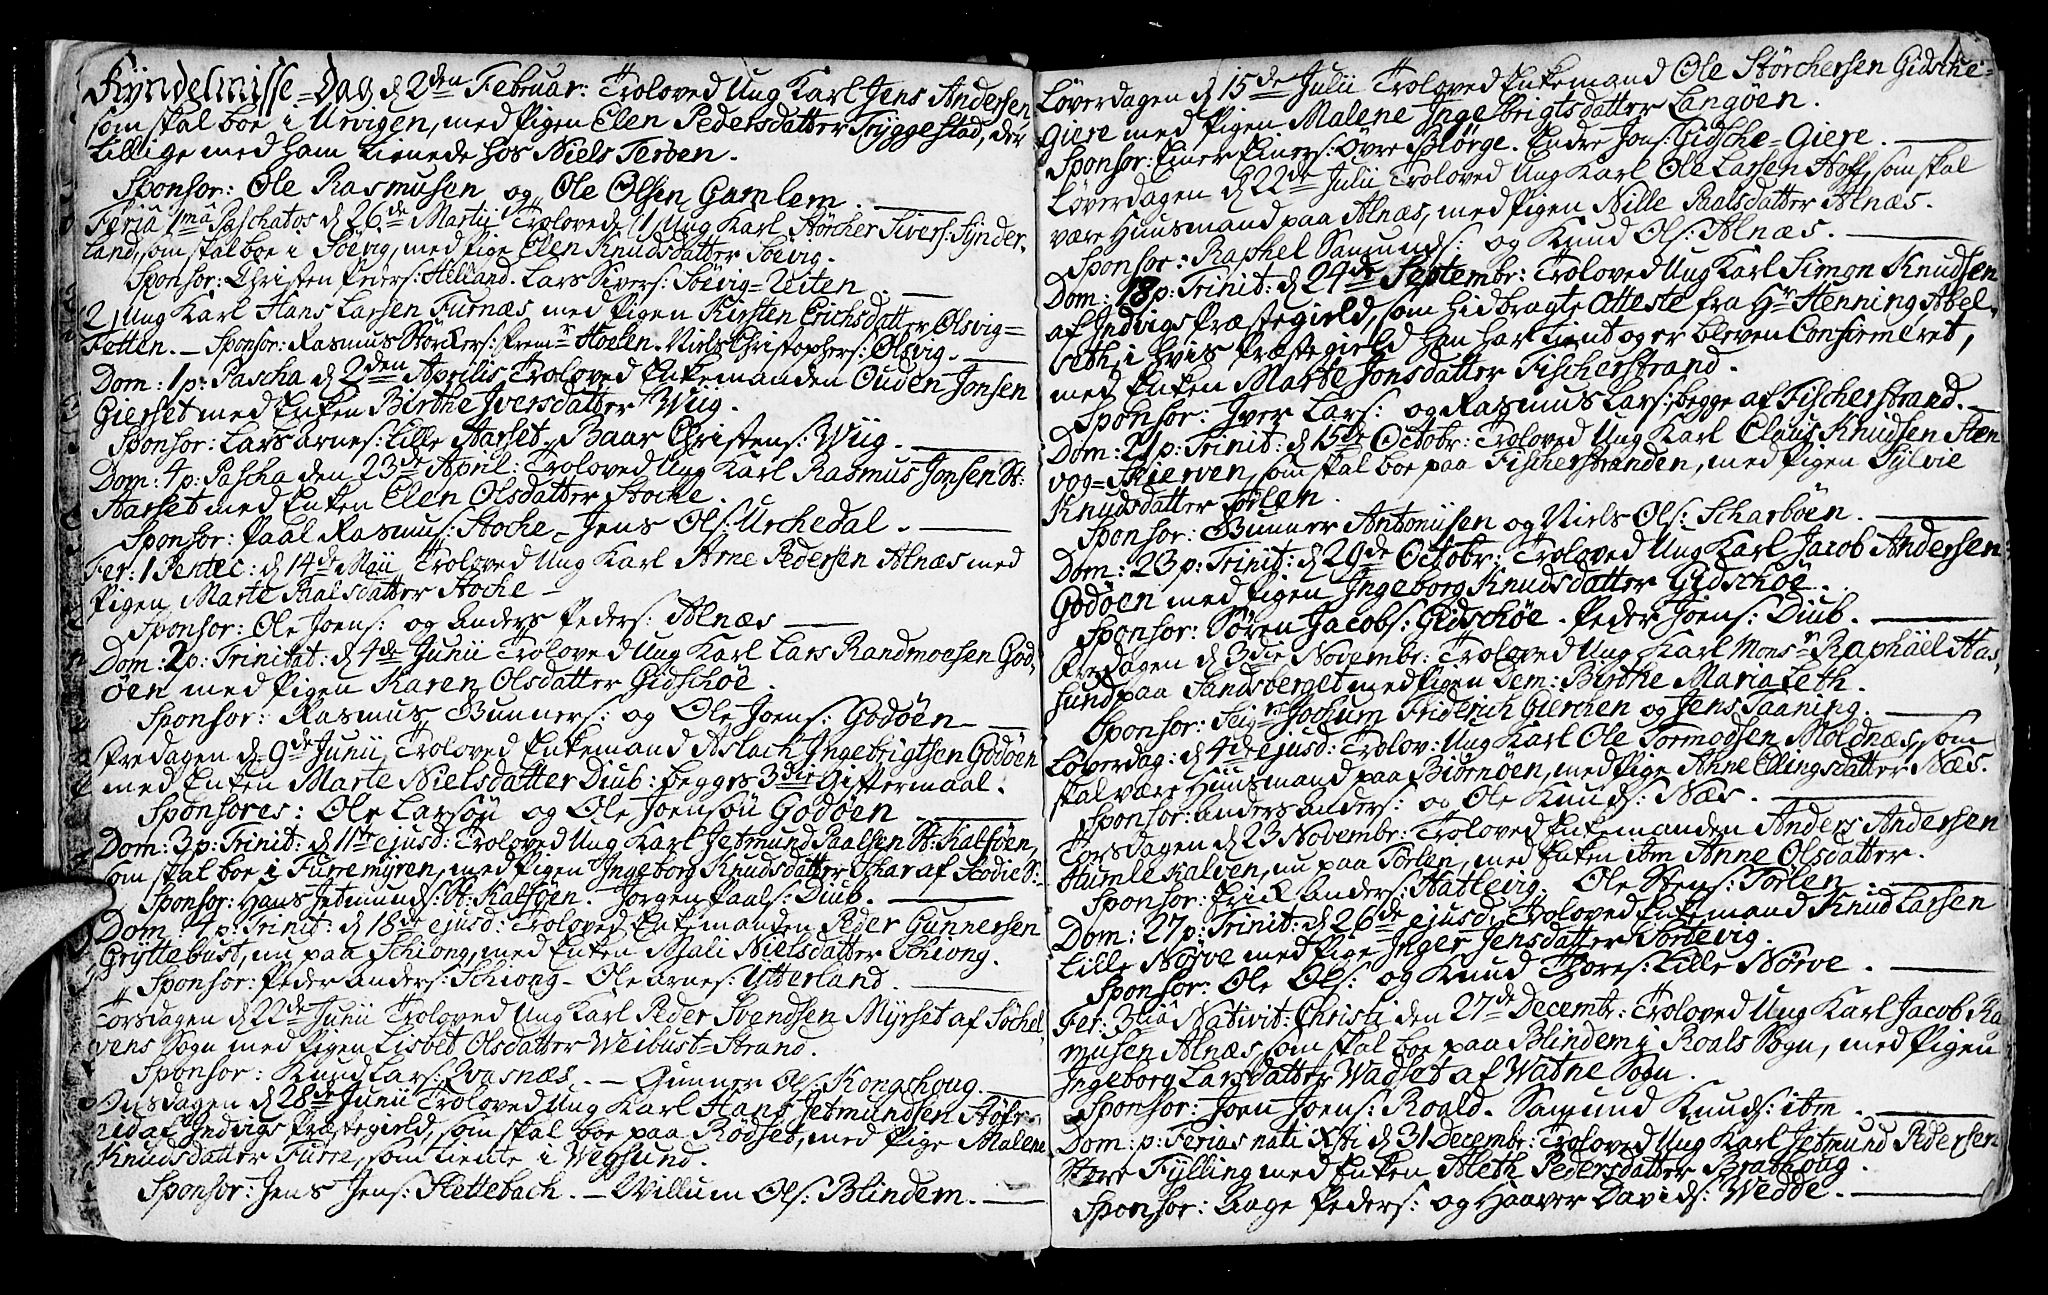 Kyndelmisse=Dag d 2den Februar: Troloved Ung Karl Jens Andersen
som skal boe i Urvigen, med Pigen Elen Pedersdatter Tryggestad, der
tillige med ham tienede hos Niels Terøen.
Sponsor: Ole Rasmusen og Ole Olsen Gamlem.
Feria 1mâ Paschatos d 26de Martii Trolovede 1 Ung Karl Størcher Sivers: Synder
land, som skal boe i Søevig, med Pige Elen Knudsdatter Søevig.
Sponsor: Christen Peders: Helland. Lars Sivers: Søevig=Zeiten.
2 Ung Karl Hans Larsen Furnæs med Pigen Kirsten Erichsdatter Olsvig=
Fetten. - Sponsor: Rasmus Størkers: Stoelen. Niels Christophers: Olsvig.
Dom: 1 p: Pascha d 2den Aprilis Troloved Enkemanden Ouden Jonsen
Gierset med Enken Birthe Iversdatter Wiig.
Sponsor: Lars Arnes: Lille Aarset. Baar Christens: Wiig.
Dom: 4 p: Pascha den 23de April: Troloved Ung Karl Rasmus Jonsen St:
Aarset med Enken Elen Olsdatter Stocke.
Sponsor: Paal Rasmus: Stoche - Jens Ols: Urchedal.
Fer: 1 Pentec: d 14de Maji Troloved Ung Karl Arne Pedersen Alnæs med
Pigen Marte Paalsdatter Stoche -
Sponsor: Ole Joens: og Anders Peders: Alnæs
Dom: 2 p: Trinitat: d 4de Junii Troloved Ung Karl Lars Randmoesen God,
øen med Pigen Karen Olsdatter Gidschøe.
Sponsor: Rasmus Gunners: og Ole Joens: Godøen
Fredagen d 9de Junii Troloved Enkemand Aslach Ingebrigtsen Godøen
med Enken Marte Nielsdatter Diub: begges 3die Giftermaal.
Sponsores: Ole Larsøn og Ole Joensøn Godøen
Dom: 3 p: Trinit: d 11te ejusd: Troloved Ung Karl Jetmund Paalsen St: Kalføen,
som skal boe i Furremyren, med Pigen Ingeborg Knudsdatter Schar af Stodie S:
Sponsor: Hans Jetmunds: St: Kalføen. Jørgen Paals: Diub.
Dom: 4 p: Trinit: d 18de ejusd: Troloved Enkemanden Peder Gunnersen
Gryttebust, nu paa Schiong, med Enken Mali Nielsdatter Schiong.
Sponsor: Peder Anders: Schiong - Ole Arnes: Utterland.
Torsdagen d 22de Junii Troloved Ung Karl Peder Svendsen Myrset af Søchel,
vens Sogn med Pigen Lisbet Olsdatter Weibust=Strand.
Sponsor: Knud Lars: Qvasnæs. - Gunner Ols: Kongshoug.
Onsdagen d 28de Junii Troloved Ung Karl Hans Jetmundsen
af Indvigs Præstegield, som skal boe paa Rødset, med Pige Malene
Knudsdatter Furre, som tiente i Wegsund.
Sponsor: Jens Jens: Slettebach. - Willum Ols: Blindem.
Løverdagen d 15de Julii Troloved Enkemand Ole Størchersen Gidsche=
Giere med Pigen Malene Ingebrigtsdatter Langøen.
Sponsor: Einer Einers: Øvre Blørge. Endre Jons: Gidsche=Giere.
Løverdagen d 22de Julii Troloved Ung Karl Ole Larsen Hoff, som skal
være Huusmand paa Alnæs, med Pigen Nille Paalsdatter Alnæs.
Sponsor: Raphel Samunds: og Knud Ols: Alnæs.
Dom: 18 p: Trinit: d 24de Septembr: Troloved Ung Karl Simon Knudsen
af Indvigs Præstegield, som hidbragte Atteste fra Hr Henning Abel,
seth, i hvis Præstegield han har tient og er bleven Confirmeret,
med Enken Marte Jonsdatter Fischerstrand.
Sponsor: Iver Lars: og Rasmus Lars: begge af Fischerstrand.
Dom: 21 p: Trinit: d 15de Octobr: Troloved Ung Karl Claus Knudsen Sten
vog=Skierven, som skal boe paa Fischerstranden, med Pigen Sylvie
Knudsdatter Tørlem.
Sponsor: Gunner Antonisen og Niels Ols: Scharbøen.
Dom: 23 p: Trinit: d 29de Octobr: Troloved Ung Karl Jacob Andersen
Godøen med Pigen Ingeborg Knudsdatter Gidschöe.
Sponsor: Søren Jacobs: Gidschøe. Peder Joens: Diub.
Fredagen d 3die Novembr: Troloved Ung Karl Monsr Raphäel Aa,
sund paa Sandsberget med Pigen Dem: Birthe Maria Leth.
Sponsor: Seigr Jochum Friderich Giercken og Jens Saaning.
Løverdag: d 4de ejusd: Trolov: Ung Karl Ole Tormodsen Moldnæs, som
skal være Huusmand paa Biørnøen, med Pige Anne Ellingsdatter Næs.
Sponsor: Anders Anders: og Ole Knuds: Næs.
Torsdagen d 23 Novembr: Troloved Enkemanden Anders Andersen
Humlekalven, nu paa Tørlen, med Enken ibm Anne Olsdatter.
Sponsor: Erick Anders: Hatlevig. Ole Stens: Tørlen
Dom: 27 p: Trinit: d 26de ejusd: Troloved Enkemand Knud Larsen
Lille Nørve med Pige Inger Jensdatter Sortevig.
Sponsor: Ole Ols: og Knud Thores: Lille Nørve.
Fer: 3tiâ Nativit: Christi den 27de Decembr: Troloved Ung Karl Jacob Ra
musen Alnæs, som skal boe paa Blindem i Roals Sogn, med Pigen
Ingeborg Larsdatter Wadset af Watne Sogn.
Sponsor: Joen Joens: Roald. Samund Knuds: ibm.
Dom: p: Ferias nati Xsti d 31 Decembr: Troloved Ung Karl Jetmund Pedersen
Store Fylling med Enken Aleth Pedersdatter Brathoug.
Sponsor: Aage Peders: og Haaver Davids: Wedde.